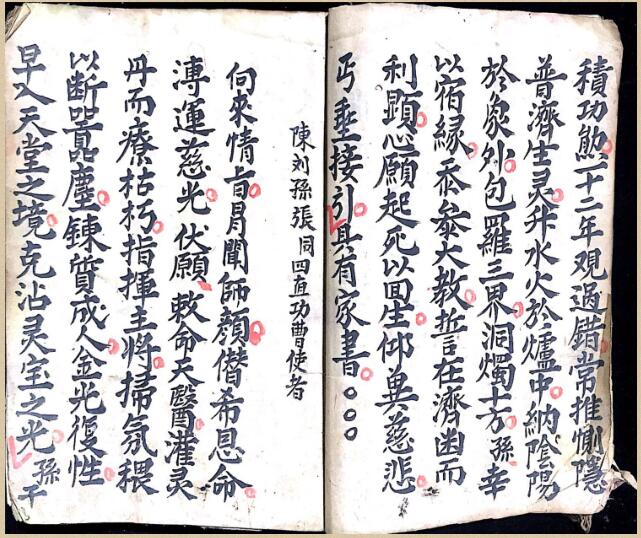 積功勲二十二年观過錯常推惻隐
普濟生灵升水火於爐中納陰陽
於象外包羅三界洞燭十方孫幸
以宿緣忝叅大教誓在濟幽而
利顕心願起死以囬生仰兾慈悲
丐垂接引具有家書。。。
陳刘孫張同四直功曹使者
向來情旨冐聞師顔僭希恩命
溥運慈光伏願敕命天醫灌灵
丹而療枯朽指揮主將掃氛穢
以断囂塵錬質成人金光復性
早入天堂之境克沾灵宝之光孫干